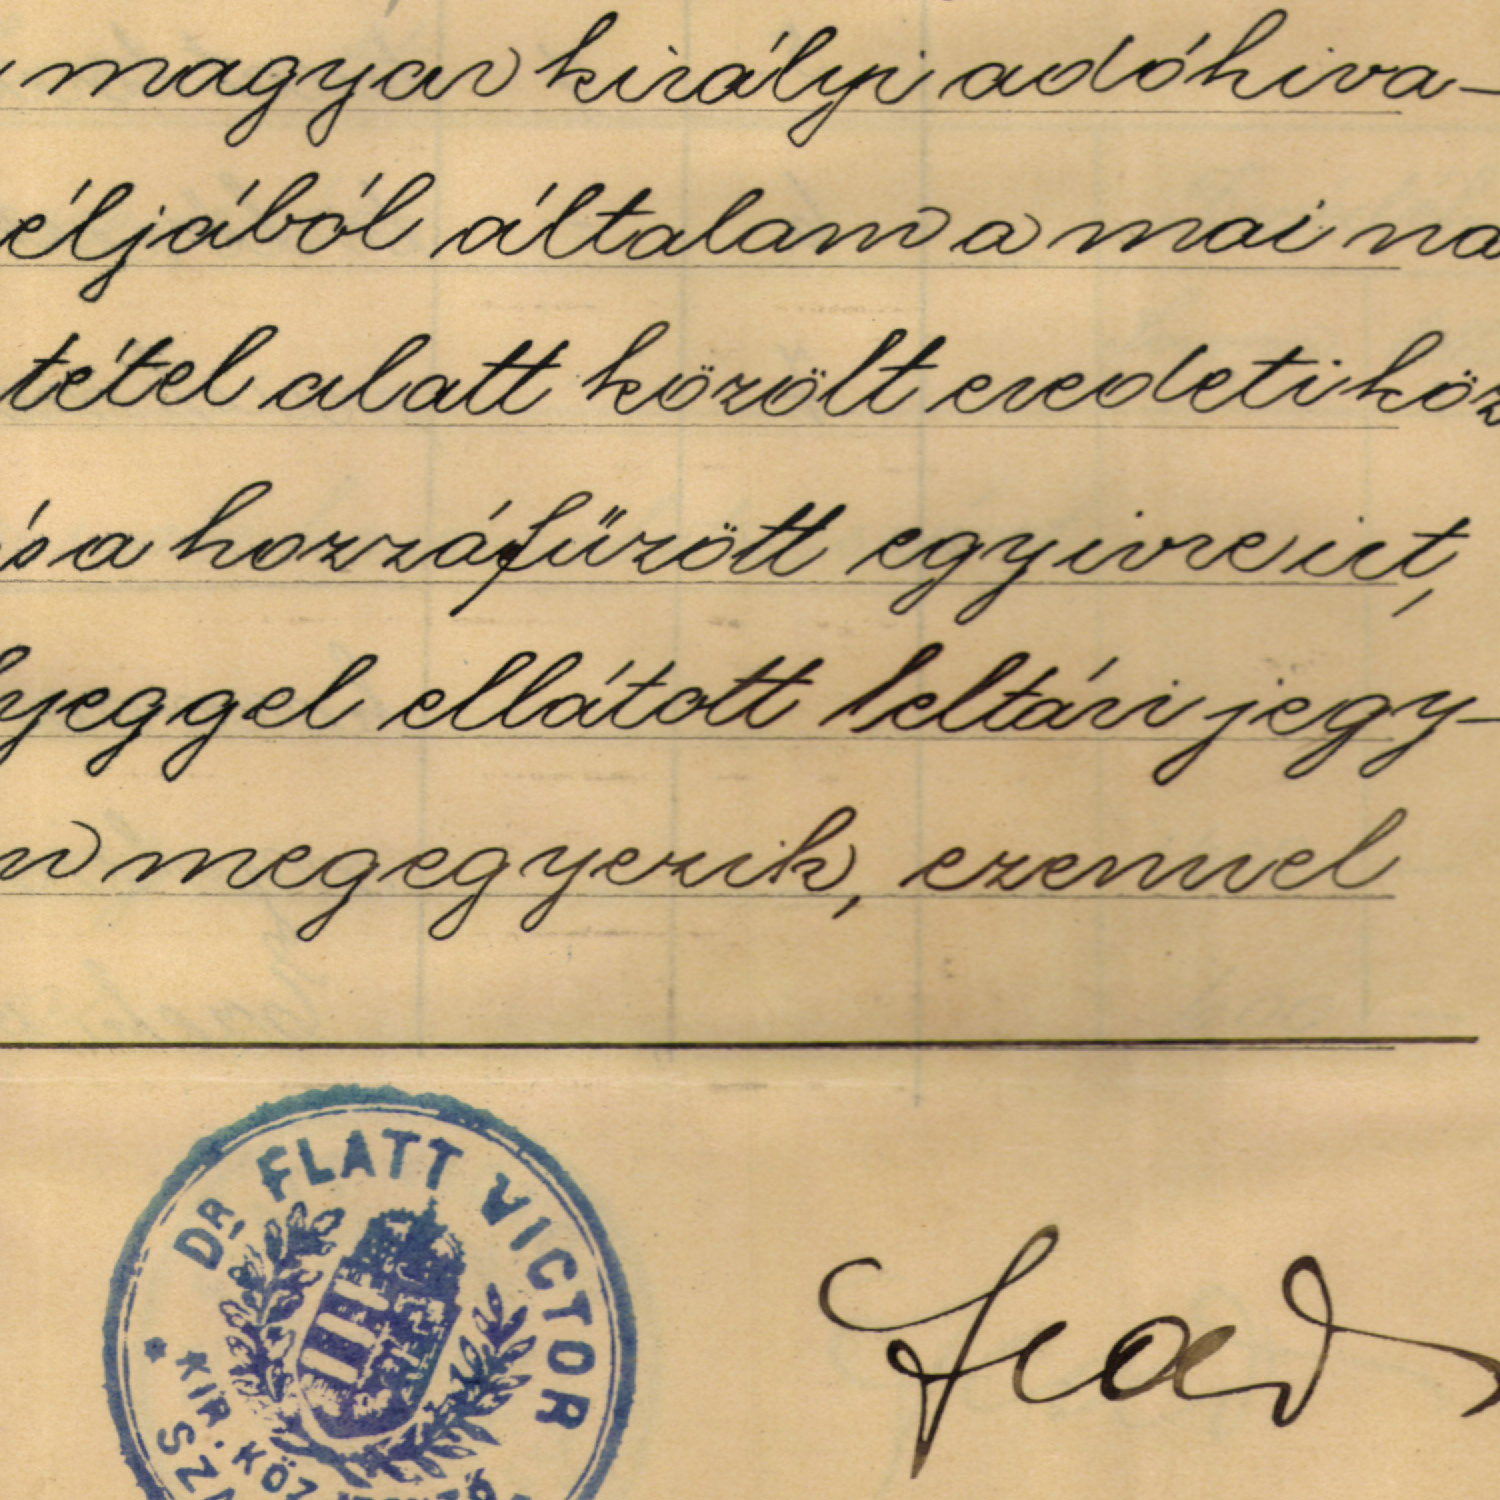 magyar királyi adóhiva-
éljából általam a mai na
tétel alatt közölt eredeti köz
és a hozzáfűzött egy ivre irt,
lyeggel ellátott leltári jegy-
n megegyezik, ezennel
DR. FLATT VICTOR
KIR. KÖZJEGYZŐ